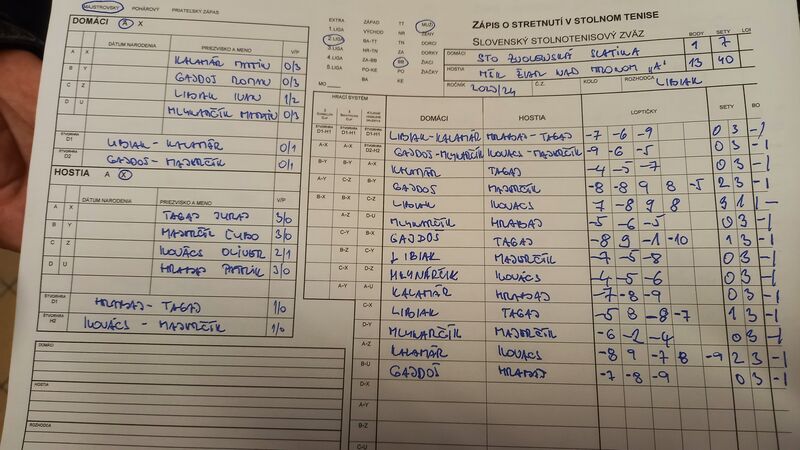 MAJSTROVSKÝ POHÁROVÝ PRIATEĽSKÝ ZÁPAS
DOMÁCI A X
DÁTUM NARODENIA PRIEZVISKO A MENO V/P
A X KALAMÁR MATÚŠ 0/3
B Y GAJDOŠ ROMAN 0/3
C Z LIBIAK IVAN 1/2
D U MLYNARČÍK 0/3
ŠTVORHRA D1 LIBIAK - KALAMÁR 0/1
ŠTVORHRA D2 GAJDOŠ - 0/1
HOSTIA A X
DÁTUM NARODENIA PRIEZVISKO A MENO V/P
A X TAGAJ JURAJ 3/0
B Y MAJERČÍK ĽUBO 3/0
C Z KOVÁCS OLIVER 2/1
D U HRABAJ PATRIK 3/0
ŠTVORHRA HRABAJ - TAGAJ 1/0
ŠTVORHRA H2 KOVÁCS - MAJERČÍK 1/0
DOMÁCI
HOSTIA
ROZHODCA
EXTRA ZÁPAD TT MUŽI
1.LIGA VÝCHOD NR ŽENY
2.LIGA BA-TT TN DORCI
3.LIGA NR-TN ZA DORKY
4.LIGA ZA-BB BB ŽIACI
5.LIGA PO-KE PO ŽIAČKY
MO BA KE
ZÁPIS O STRETNUTÍ V STOLNOM TENISE
SLOVENSKÝ STOLNOTENISOVÝ ZVÄZ BODY SETY
DOMÁCI STO ZVOLENSKÁ SLATINA 1 7
HOSTIA MŠK ŽIAR NAD HRONOM "A" 13 40
ROČNÍK 2023/24 Č.Z. KOLO ROZHODCA LIBIAK
HRACÍ SYSTÉM DOMÁCI HOSTIA LOPTIČKY SETY BO
D1-H1 LIBIAK-KALAMÁR HRABAJ-TAGAJ -7 -6 -9 0 3 -1
A-X D2-H2 GAJDOŠ-MLYNARČÍK KOVÁCS-MAJERČÍK -9 -6 -5 0 3 -1
B-Y A-X KALAMÁR TAGAJ -4 -5 -7 0 3 -1
A-Y C-Z B-Y GAJDOŠ MAJERČÍK -8 -8 9 8 -5 2 3 -1
B-X C-Z LIBIAK KOVÁCS 7 -8 9 8 3 1 1-
A-Z D-U MLYNARČÍK HRABAJ -5 -6 -5 0 3 -1
C-Y B-X GAJDOŠ TAGAJ -8 9 -1 -10 1 3 -1
B-Z C-Y LIBIAK MAJERČÍK -7 -5 -8 0 3 -1
C-X D-Z MLYNARČÍK KOVÁCS -4 -5 -6 0 3 -1
A-Y A-U KALAMÁR HRABAJ -7 -8 -9 0 3 -1
C-X LIBIAK TAGAJ -5 8 -8 -7 1 3 -1
D-Y MLYNARČÍK MAJERČÍK -6 -2 -4 0 3 -1
A-Z KALAMÁR KOVÁCS -8 9 -7 8 -9 2 3 -1
B-U GAJDOŠ HRABAJ -7 -8 -9 0 3 -1
D-X
A-Y
B-Z
C-U